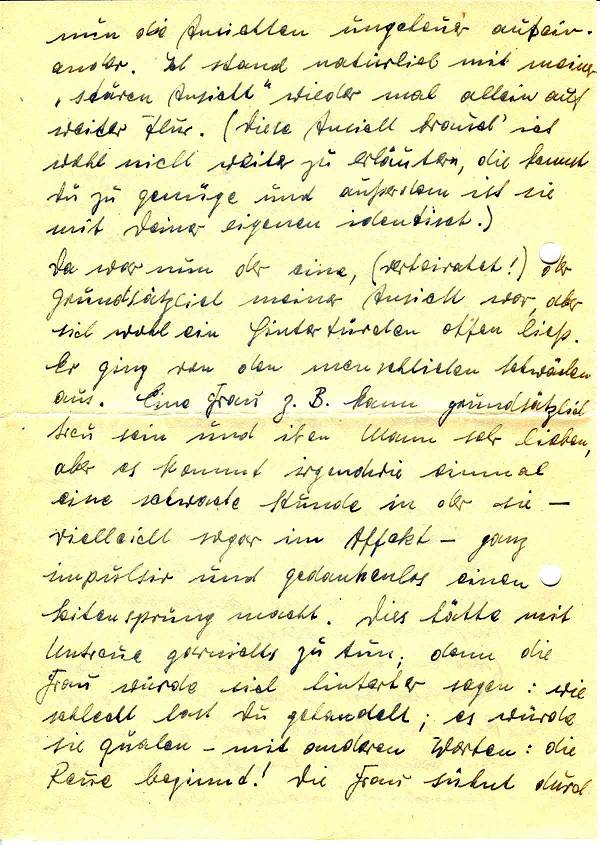 nun die Ansichten ungeheuer aufein-
ander. Ich stand natürlich mit meiner
"sturen Ansicht" wieder mal allein auf
weiter Flur. (Diese Ansicht brauch' ich
wohl nicht weiter zu erläutern, die kennst
Du zu genüge und außerdem ist sie
mit Deiner eigenen identisch.)
Da war nun der eine, (verheiratet!) der
grundsätzlich meiner Ansicht war, aber
sich wohl ein Hintertürchen offen ließ.
Er ging von den menschlichen Schwächen
aus. Eine Frau z. B. kann grundsätzlich
treu sein und ihren Mann sehr lieben,
aber es kommt irgendwie einmal
eine schwache Stunde in der sie –
vielleicht sogar im Affekt – ganz
impulsiv und gedankenlos einen
Seitensprung macht. Dies hätte mit
Untreue garnichts zu tun, denn die
Frau würde sich hinterher sagen: wie
schlecht hast Du gehandelt; es würde
sie quälen – mit anderen Worten: die
Reue beginnt! Die Frau sühnt durch